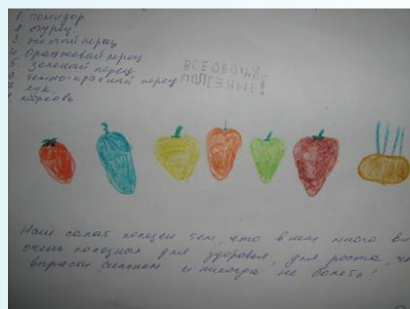 1. помидор
2. огурец
3. жёлтый перец
4. оранжевый перец
5. зеленый перец
6. темно-красный перец
7. лук
морковь
ВСЕ ОВОЩИ
ПОЛЕЗНЫЕ!
Наш салат полезен тем, что в нем много
очень полезных для здоровья, для роста,
вырасти сильным и никогда не болеть!